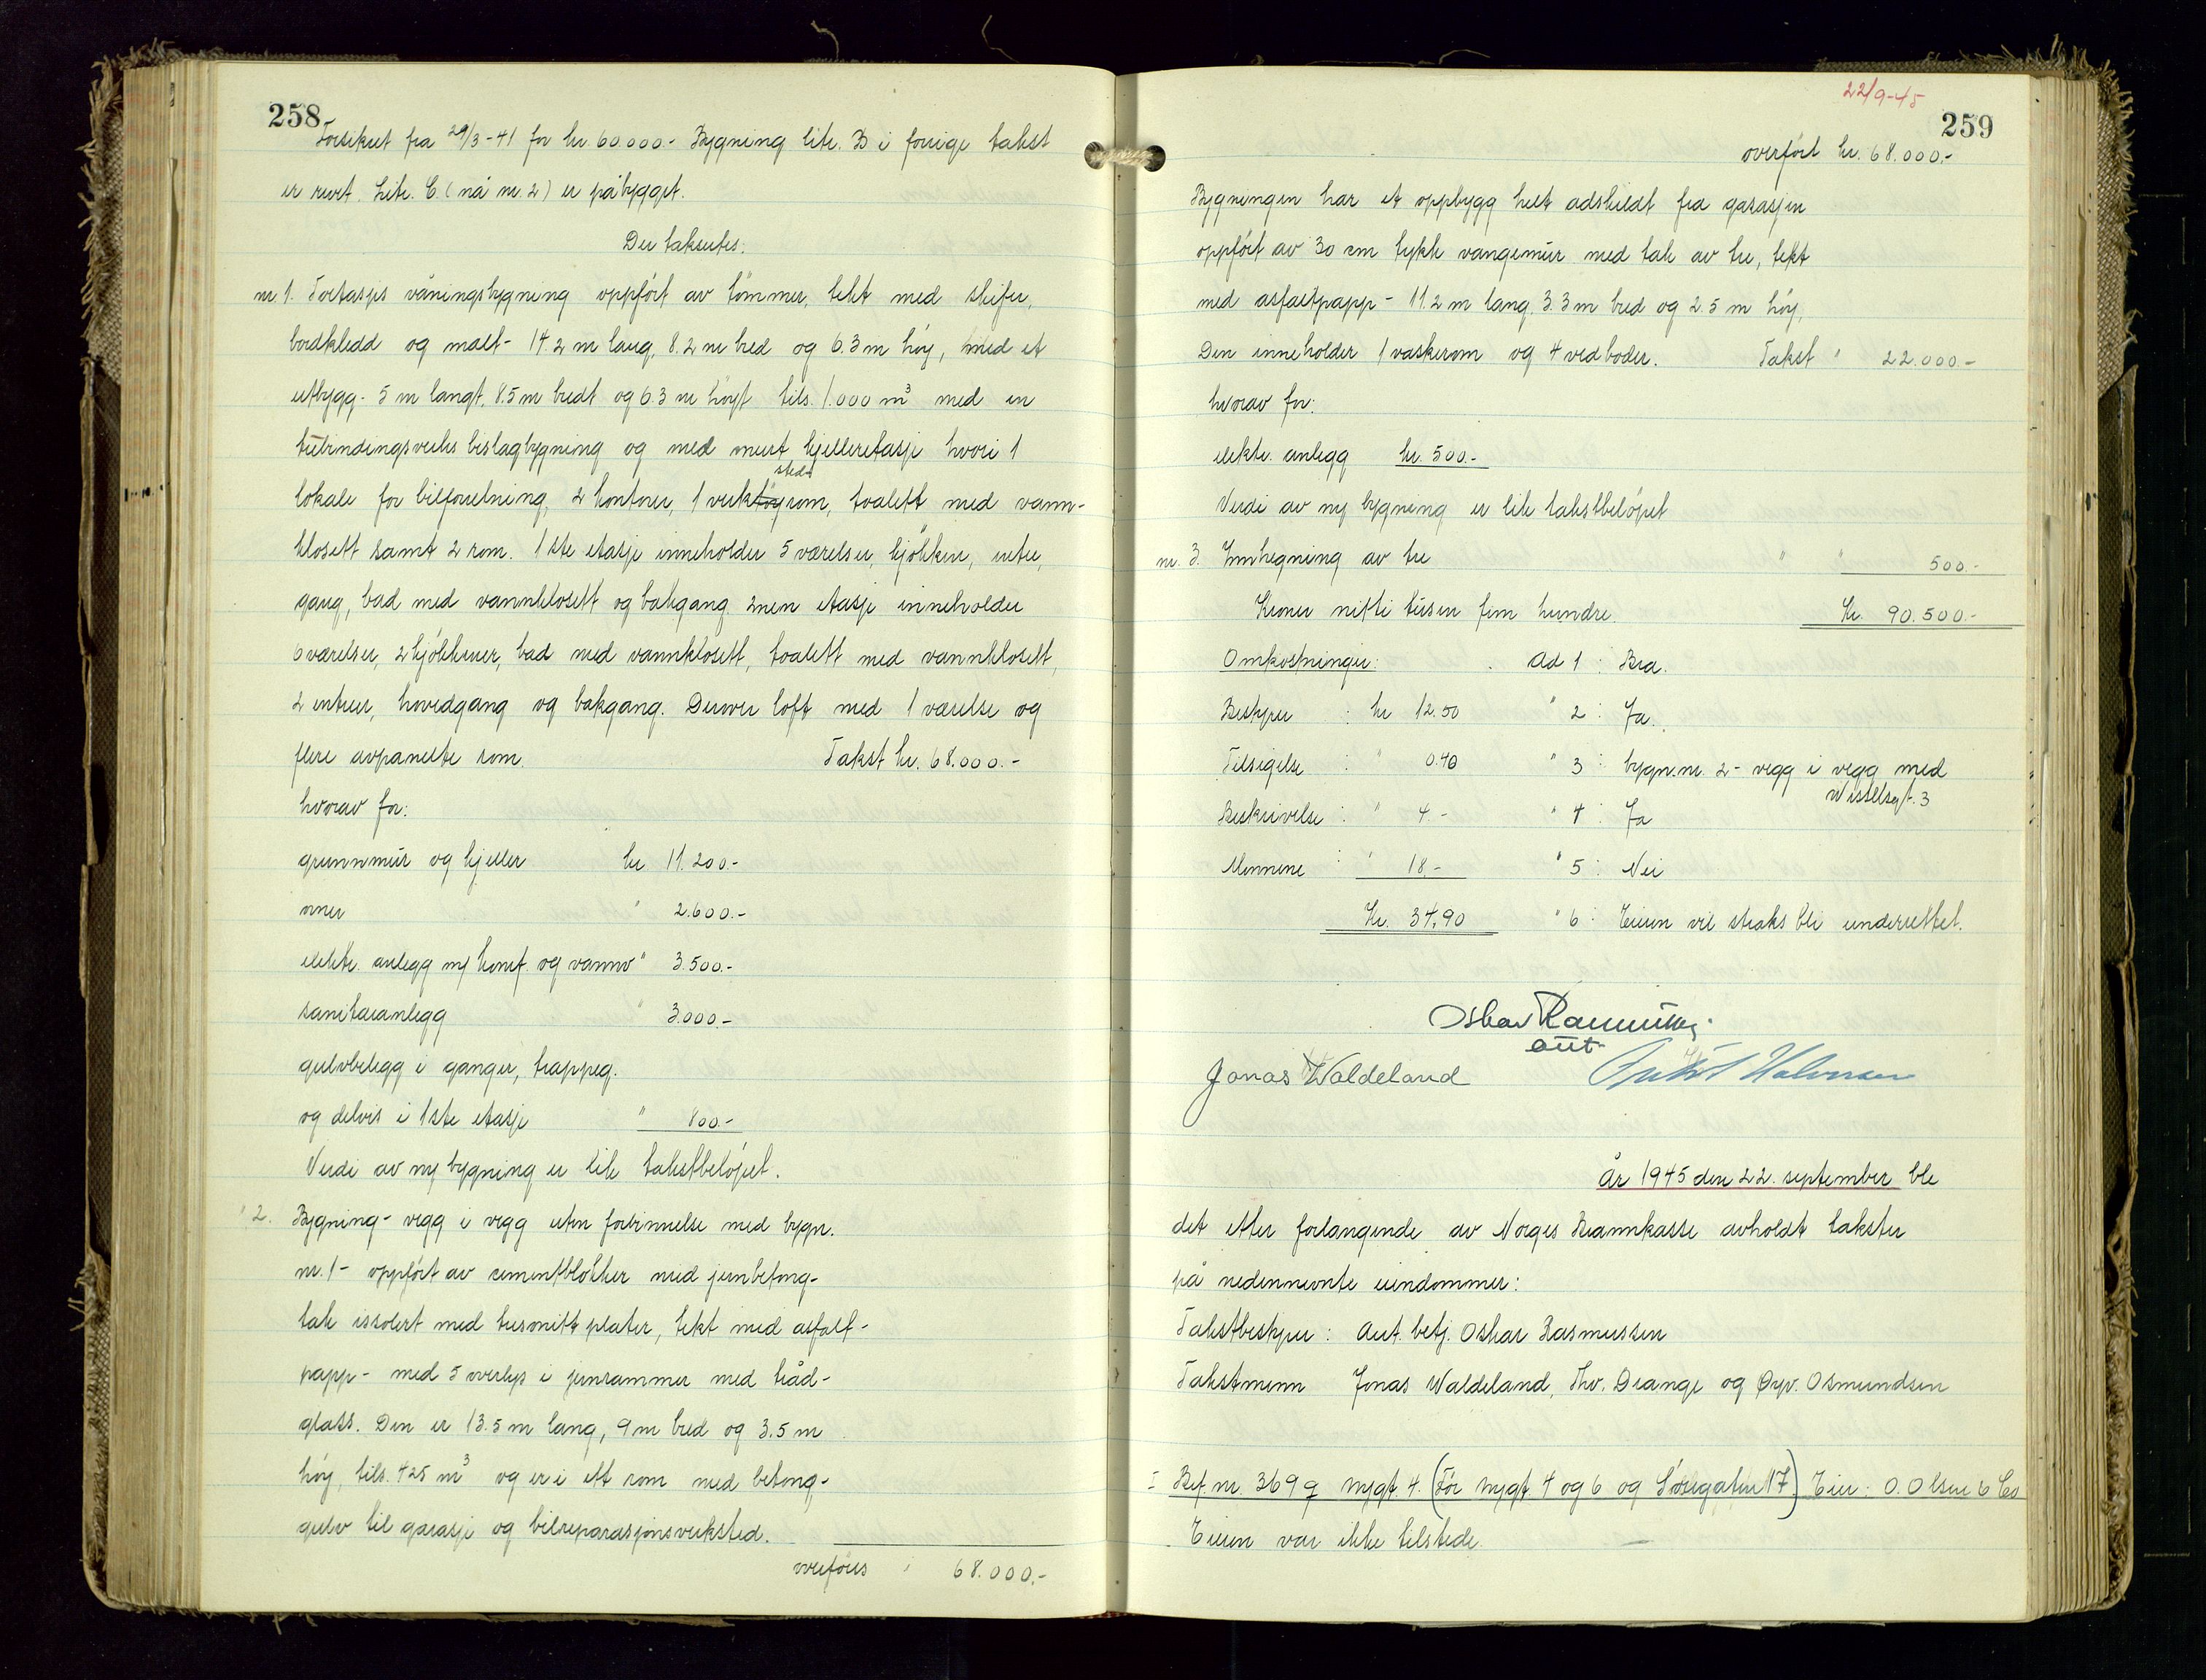 258
Forsikret fra 29/3-41 for kr. 60.000.- Bygning litr. B i forrige takst
er revet. Litr. C. (nå nr. 2) er påbygget.
Der takseres:
nr. 1. Toetasjes våningsbygning oppfört av tömmer, tekt med skifer,
bordkledd og malt - 14.2 m lang, 8.2 m bred og 6.3 m höy, med et
utbygg - 5 m langt, 8.5 m bredt og 6.3 m höyt tils. 1.000 m³ med en
utbindingsverks bislagbygning og med muret kjelleretasje hvori 1
lokale for bilforretning, 2 kontorer, 1 verkstedrom, toalett med vann-
klosett samt 2 rom. 1ste etasje inneholder 5 værelser, kjökken, entre,
gang, bad med vannklosett og bakgang. 2nen etasje inneholder
6 værelser, 2 kjökkener, bad med vannklosett, toalett med vannklosett,
2 entreer, hovedgang og bakgang. Derover loft med 1 værelse og
flere avpanelte rom. Takst kr. 68.000.-
hvorav for:
grunnmur og kjeller kr 11.200.-
ovner " 2.600.-
elektr. anlegg m/ komf. og vannv " 3.500.-
sanitæranlegg " 3.000.-
gulvbelegg i ganger, trappeg.
og delvis i 1ste etasje " 800.-
Verdi av ny bygning er lik takstbelöpet.
" 2. Bygning - vegg i vegg uten forbinnelse med bygn.
nr. 1 - oppfört av cementblokker med jernbetong-
tak issolert med treonitt plater, tekt med asfalt-
papp - med 5 overlys i jernrammer med tråd-
glass. Den er 13.5 m lang, 9 m bred og 3.5 m
höy, tils. 425 m³ og er i ett rom med betong-
gulv til garasje og bilreparasjonsverksted.
overföres " 68.000.-
22/9-45
259
overfört kr. 68.000.-
Bygningen har et oppbygg helt adskildt fra garasjen
oppfört av 30 cm tykk vangemur med tak av tre, tekt
med asfaltpapp - 11.2 m lang, 3.3 m bred og 2.5 m höy.
Den inneholder 1 vaskerom og 4 vedboder. Takst " 22.000.-
hvorav for:
elektr. anlegg kr. 500.-
Verdi av ny bygning er lik takstbelöpet
nr. 3. Innhegning av tre " " 500.-
Kroner nitti tusen fem hundre. Kr. 90.500.-
Omkostninger: Ad 1 : Bra.
Bestyrer : kr 12.50 " 2 : Ja.
Tilsigelse : " 0.40 " 3 : bygn. nr. 2 - vegg i vegg med
Wesselsgt. 3
Beskrivelse : " 4.- " 4 : Ja
Mennene : " 18.- " 5 : Nei
Kr. 34,90 " 6 : Eieren vil straks bli underrettet.
Oskar Rasmussen
aut.
Jonas Waldeland Halvorsen
År 1945 den 22. september ble
det etter forlangende av Norges Brannkasse avholdt takster
på nedennevnte eiendommer:
Takstbestyrer : Aut. betj. Oskar Rasmussen
Takstmenn Jonas Waldeland, Thv. Drange og Øyv. Osmundsen
I Br.f. nr. 369 q Nygt. 4. (Før Nygt. 4 og 6 og Sóregaten 17) Eier: O. Olsen & Co
Eieren var ikke tilstede.